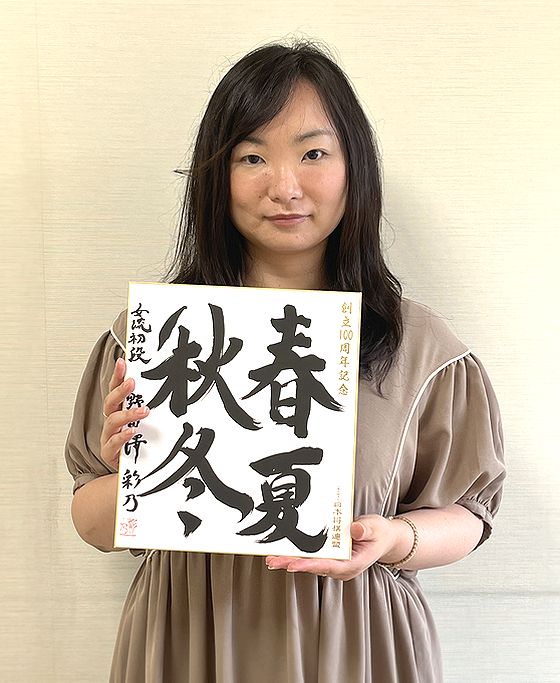 創立100周年記念
春夏
秋冬
女流初段 野田澤 彩乃
日本将棋連盟